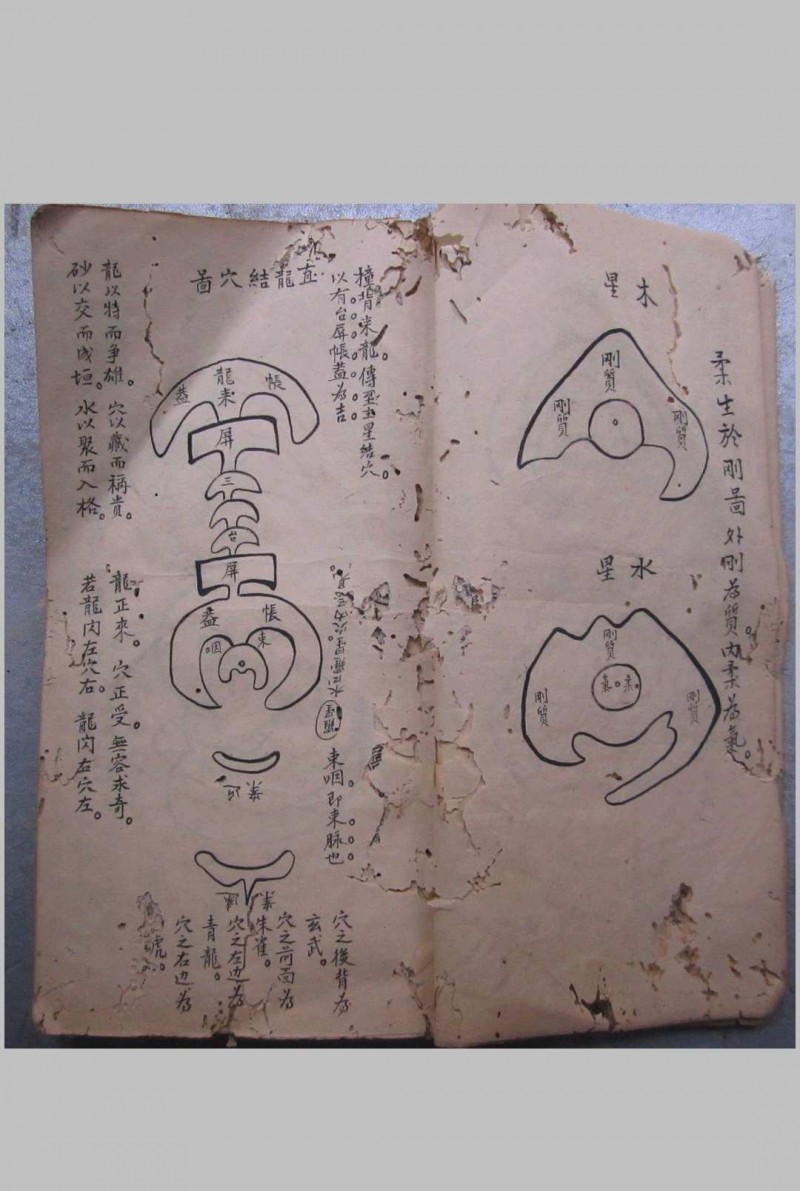 柔生於剛啚 外剛為質。內柔為氣。
木星
剛質
剛質
剛質
水星
剛質
剛質
剛質
柔。氣。
撞背來龍。傳至主星結穴。
以有台屏帳蓋為吉。
直龍結穴啚
帳
龍來
蓋
屏
三
台
屏
帳
蓋
束
咽
案近
案遠
束咽即束脉也。
穴之後背為
玄武。
穴之前面為
朱雀。
穴之左边為
青龍。
穴之右边為
虎。
龍以特而爭雄。穴以藏而稱貴。
砂以交而成垣。水以聚而入格。
龍正來。穴正受。無容求奇。
若龍閃左穴右。龍閃右穴左。